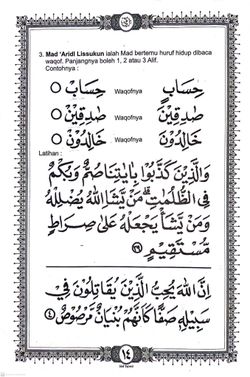 3. Mad 'Aridl Lissukun ialah Mad bertemu huruf hidup dibaca
waqof. Panjangnya boleh 1, 2 atau 3 Alif.
Contohnya :
حِسَابٍ Waqofnya حِسَابْ ○
صٰدِقِيْنَ Waqofnya صٰدِقِيْنْ ○
خَالِدُوْنَ Waqofnya خَالِدُوْنْ ○
Latihan :
وَالَّذِيْنَ كَذَّبُوْا بِاٰيٰتِنَا صُمٌّ وَّبُكْمٌ
فِى الظُّلُمٰتِ ۗ مَنْ يَّشَاِ اللّٰهُ يُضْلِلْهُ
وَمَنْ يَّشَأْ يَجْعَلْهُ عَلٰى صِرَاطٍ
مُّسْتَقِيْمٍ ﴿٣٩﴾
اِنَّ اللّٰهَ يُحِبُّ الَّذِيْنَ يُقَاتِلُوْنَ فِيْ
سَبِيْلِهٖ صَفًّا كَاَنَّهُمْ بُنْيَانٌ مَّرْصُوْصٌ ﴿٤﴾
١٤